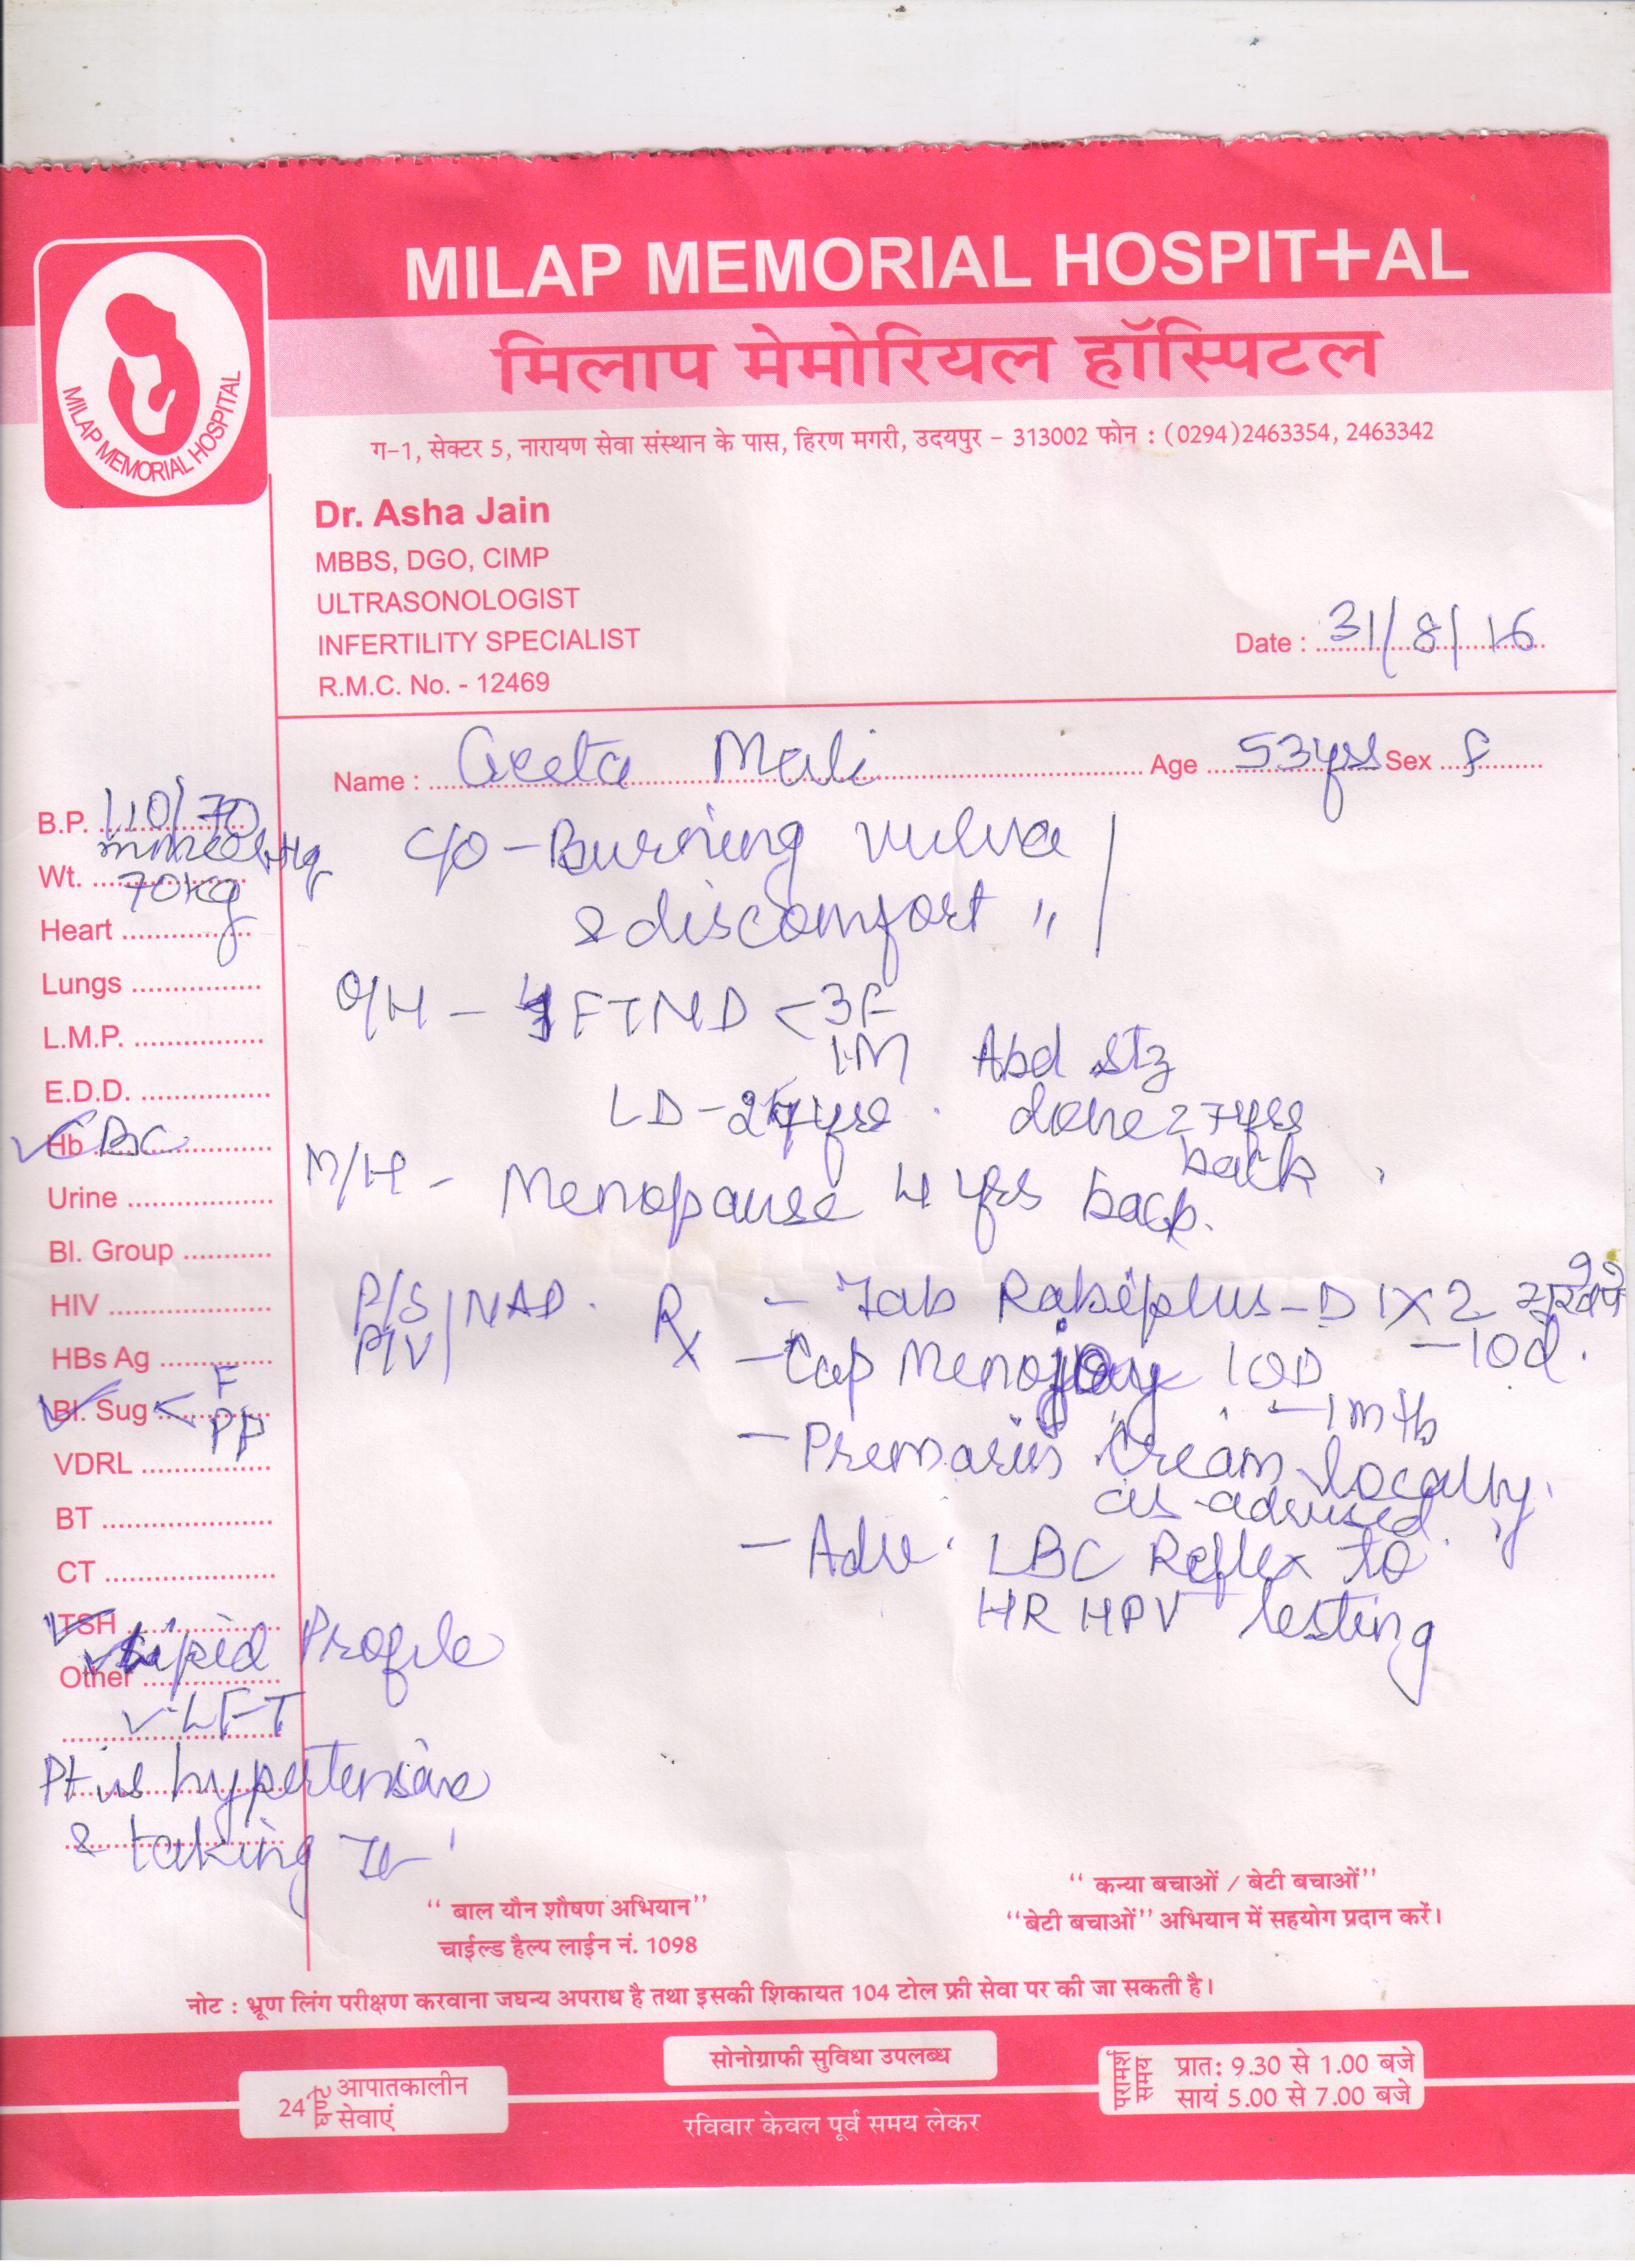 MILAP MEMORIAL HOSPIT+AL
मिलाप मेमोरियल हॉस्पिटल
MILAP MEMORIAL HOSPITAL
ग-1, सेक्टर 5, नारायण सेवा संस्थान के पास, हिरण मगरी, उदयपुर - 313002 फोन : (0294)2463354, 2463342
Dr. Asha Jain
MBBS, DGO, CIMP
ULTRASONOLOGIST
INFERTILITY SPECIALIST
R.M.C. No. - 12469
Date : 31/8/16
Name : Geeta Mali Age 53yrs Sex F
B.P. 110/70
mm of Hg
Wt. 70kg
Heart
Lungs
L.M.P.
E.D.D.
✓ Hb CBC
Urine
Bl. Group
HIV
HBs Ag
✓ Bl. Sug < F
PP
VDRL
BT
CT
✓ TSH
Other ✓ Lipid Profile
✓ LFT
Pt is hypertensive
& taking
c/o - Burning vulva
& discomfort "
O/H - 4 FTND < 3F
1M Abd stz
LD - 27yrs. done 27yrs
back
M/H - Menopause 4 yrs back.
P/S NAD. Rx - Tab Rabiplus-D 1X2
P/V - 10d.
- Cap Menojoy 1OD
- 1mth
- Premarin Cream locally
as advised
- Adv. LBC Reflex to
HR HPV testing
" बाल यौन शौषण अभियान"
चाईल्ड हैल्प लाईन नं. 1098
" कन्या बचाओं / बेटी बचाओं"
"बेटी बचाओं" अभियान में सहयोग प्रदान करें।
नोट : भ्रूण लिंग परीक्षण करवाना जघन्य अपराध है तथा इसकी शिकायत 104 टोल फ्री सेवा पर की जा सकती है।
24 घण्टे आपातकालीन
सेवाएं
सोनोग्राफी सुविधा उपलब्ध
रविवार केवल पूर्व समय लेकर
परामर्श समय
प्रात: 9.30 से 1.00 बजे
सायं 5.00 से 7.00 बजे